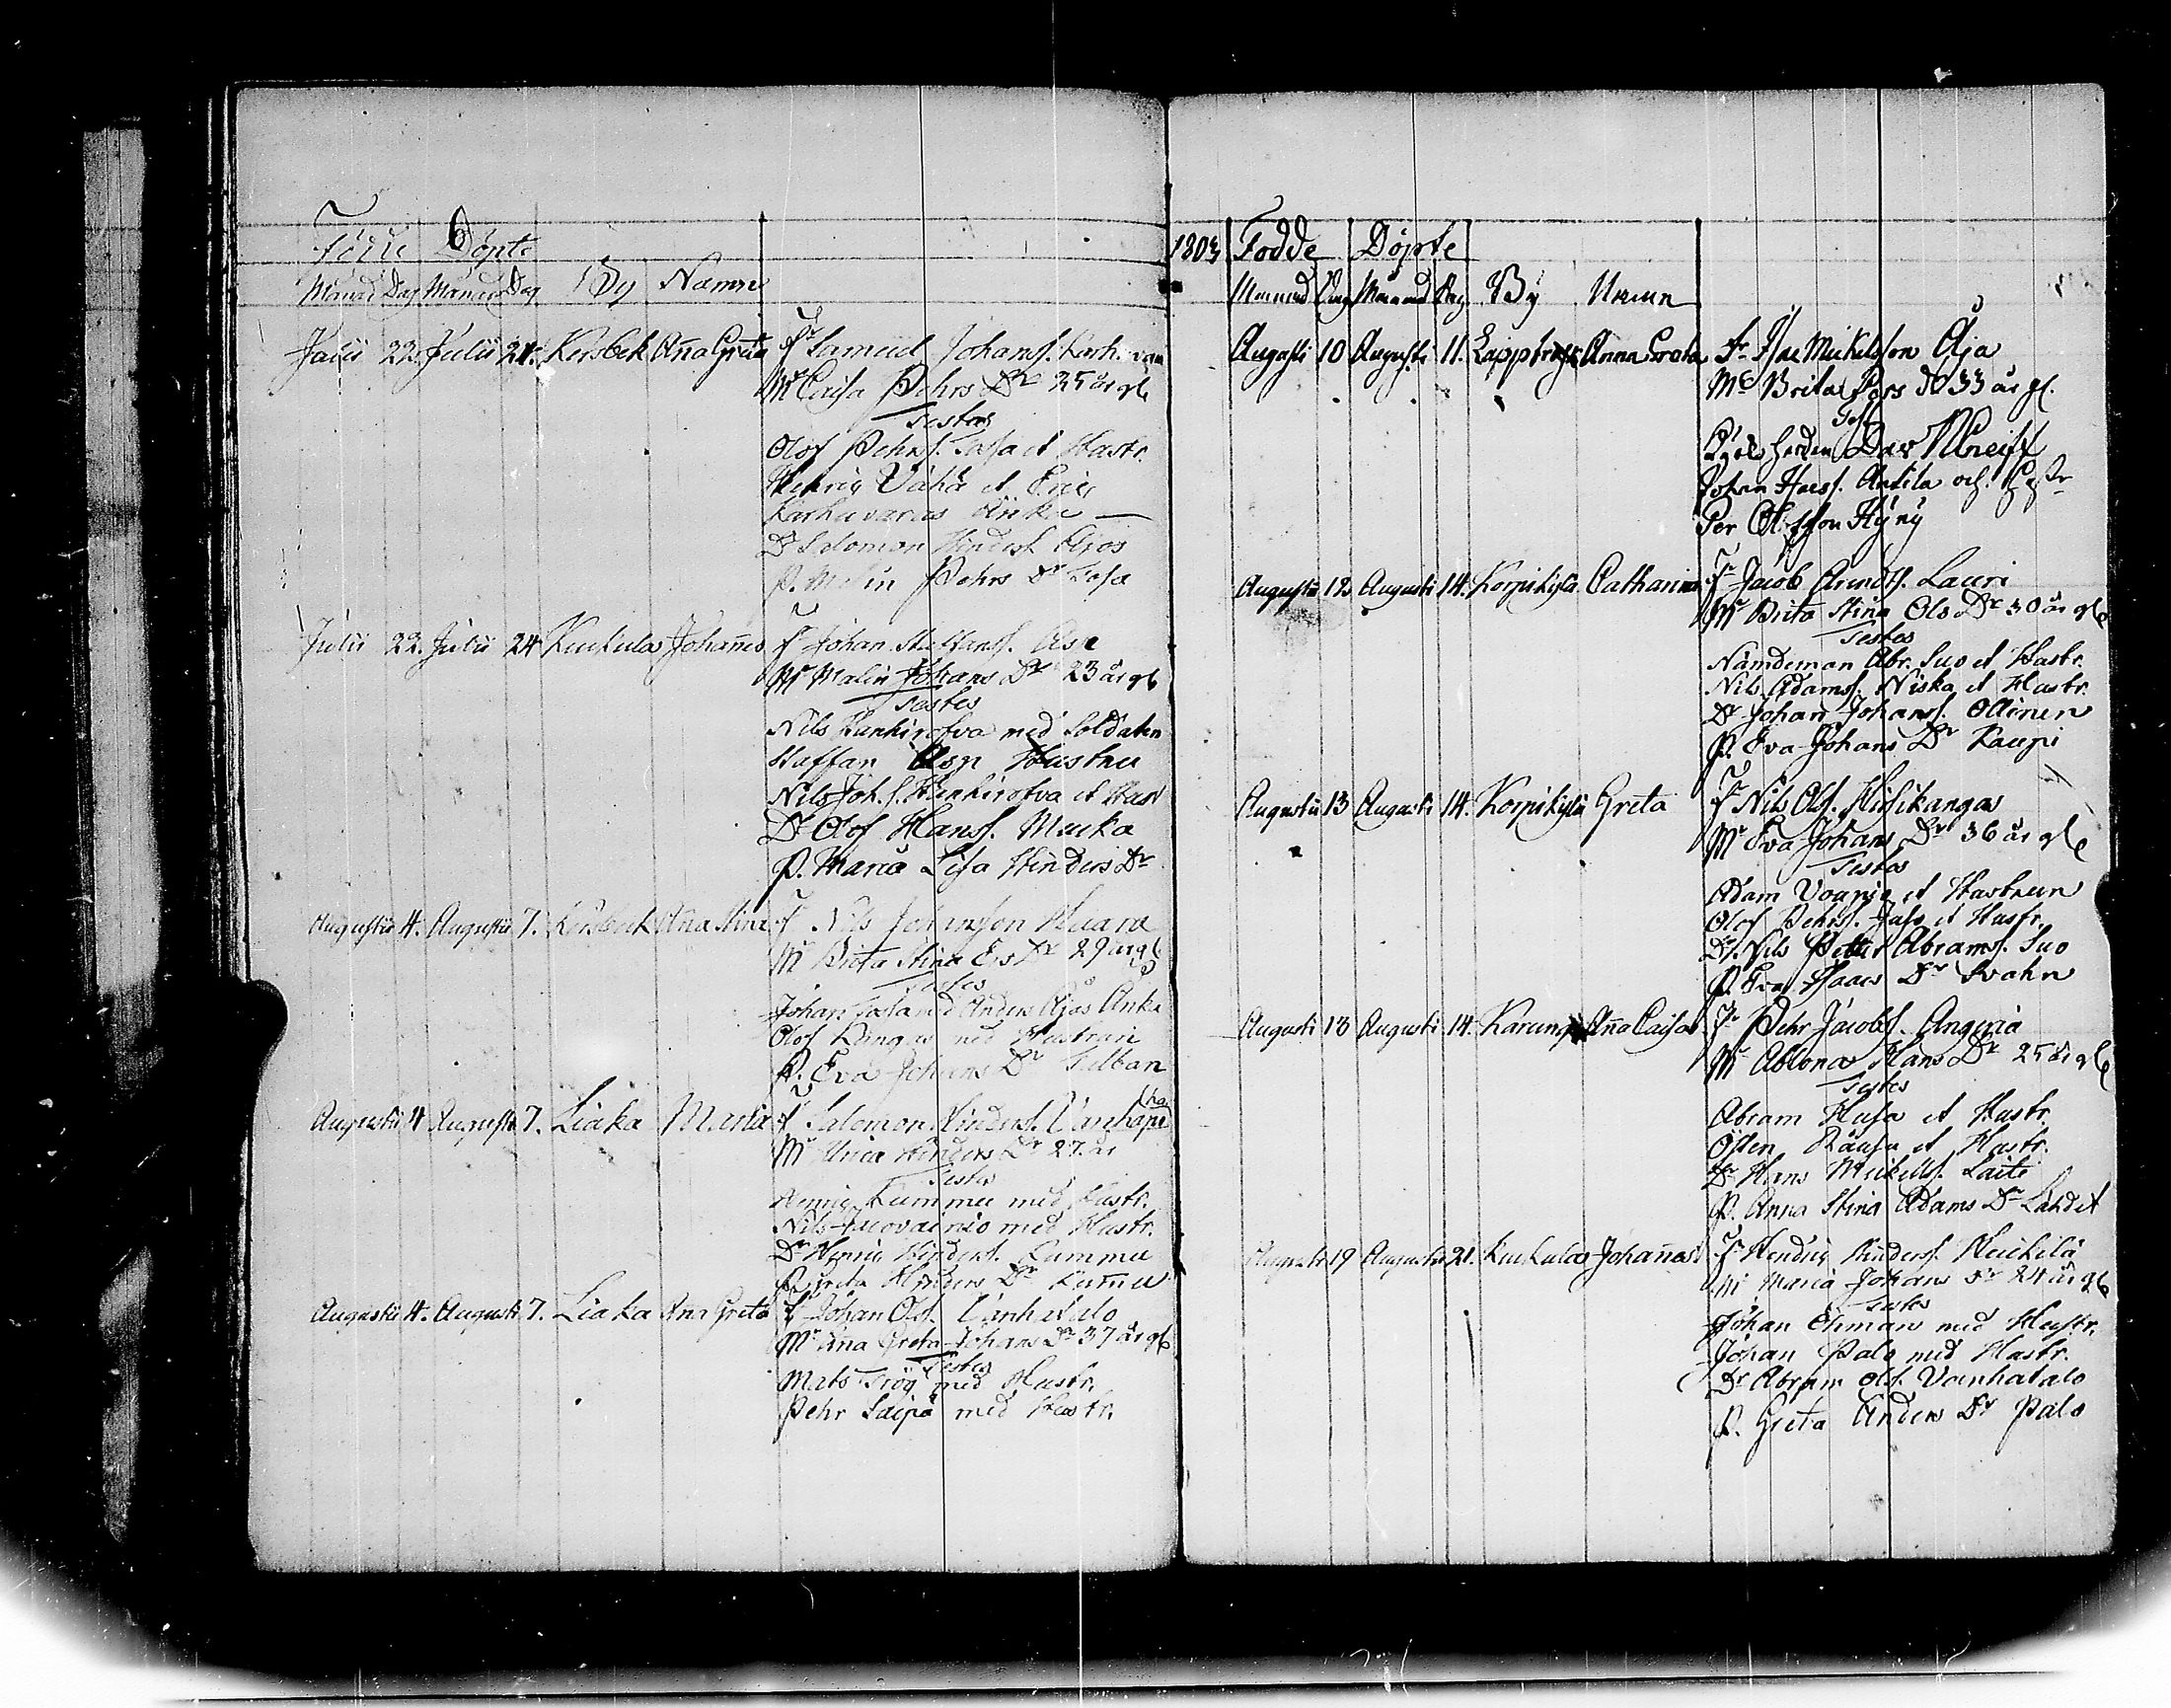 Födde Döpte
Månad Dag Månad Dag By Namn
Julii 22. Julii 24. Kersbek Aña Greta Fr Samuel Johanss. Karhuvara
Mr Caisa Pehrs Dr 25 år gl
Testes
Olof Pehrs. Fasa et Hustr.
Henric Vähä et Eric
Karhuvaras Änka
Dr Salomon Hinders. Ajos
P. Malin Pehrs Dr Fasa
Julii 22. Julii 24 Kuckula Johañes Fr Johan Staffans. Asp
Mr Malin Johans Dr 23 år gl
Testes
Nils Hunkirofva med Soldaten
Staffan Asps Hustru
Nils Joh.s. Hunkirofva et Hust
Dr Olof Hanss. Mucka
P. Maria Lisa Hinders Dr
Augustii 4. Augustii 7. Kersbeck Aña Stina Fr Nils Johansson Kuara
Mr Brita Stina Ers Dr 29 år gl
Testes
Johan Fasa med Anders Ajos Änka
Olof Kangas med Hustrun
P. Eva Johans Dr Talban
Augustii 4 Augustii 7. Liaka Maria Fr Salomon Hinders. Vanhapi
Mr Hinders Dr 27. år
Testes
Henric Lummu med Hustr.
Nils med Hustr.
Dr Henric Hinders. Lummu
P. Greta Hinders Dr Lummu
Augustii 4. Augusti 7. Liaka Aña Greta Fr Johan Ols. Vanhatalo
Mr Aña Greta Johans Dr 37 år gl
Testes
Mats Frög med Hustr.
Pehr Saipa med Hustr.
1803 Födde Döpte
Månad Dag Månad Dag By Namn
Augusti 10 Augusti 11. Lappträsk Anna Greta Fr Isac Mickelsson Äja
Mr Brita Pers dr 33 år gl.
Test
Johan Hanss. Antila och Hustr
Per Olofsson Hyny
Augusti 12 Augusti 14. Korpikylä Catharina Fr Jacob Arvids. Lauri
Mr Brita Stina Ols Dr 30 år gl
Testes
Nämdeman Abr. Suo et Hustr.
Nils Adams. Niska et Hustr.
Dr Johan Johans. Ollinen
P. Eva Johans Dr Kaupi
Augustii 13 Augusti 14. Korpikylä Greta Fr Nils Ols. Hisikangas
Mr Eva Johans Dr 36 år gl
Testes
Adam et Hustrun
Olof Pehrs. Fasa et Hustr.
Dr. Nils Petter Abrams. Suo
P. Eva Isacs Dr Svahn
Augusti 13 Augusti 14. Karungi Aña Caisa Fr Pehr Jacobs. Angeria
Mr Ablona Hans Dr 25 år gl
Testes
Abram Husa et Hustr.
Östen Räusa et Hustr.
Dr Hans Mickels. Laiti
P. Anna Stina Adams Dr Landet
Augusti 19 Augusti 21. Kuckula Johañes Fr Hendric Hinders. Heickilä
Mr Maria Johans Dr 24 år gl
Testes
Johan Öhman med Hustr.
Johan Palo med Hustr.
Dr Abram Ols. Vanhatalo
P. Greta Anders Dr Palo